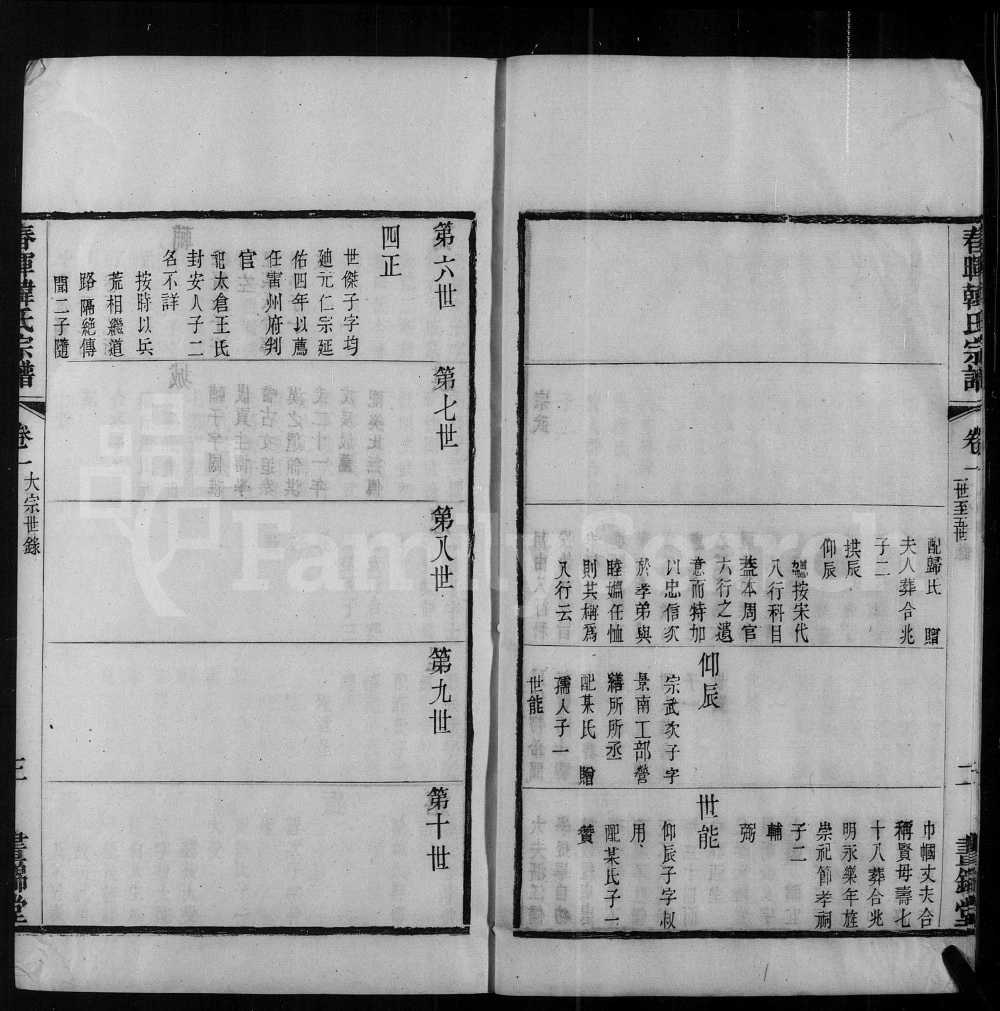 春暉韓氏宗譜
卷一
一世至五世
二
晝錦堂
配歸氏 贈
夫人葬合兆
子二
拱辰
仰辰
謹按宋代
八行科目
蓋本周官
六行之遺
意而特加
以忠信次
於孝弟與
睦婣任恤
則其稱爲
八行云
仰辰
宗武次子字
景南工部營
繕所所丞
配某氏 贈
孺人子一
世能
巾幗丈夫合
稱賢母壽七
十八葬合兆
明永樂年旌
崇祀節孝祠
子二
輔
弼
世能
仰辰子字叔
用
配某氏子一
贊
第六世
四正
世傑子字均
廸元仁宗延
佑四年以薦
任雷州府判
官
配太倉王氏
封安人子二
名不詳
按時以兵
荒相繼道
路隔絶傳
聞二子隨
第七世
第八世
第九世
第十世
春暉韓氏宗譜
卷一
大宗世錄
三
晝錦堂
Family Search